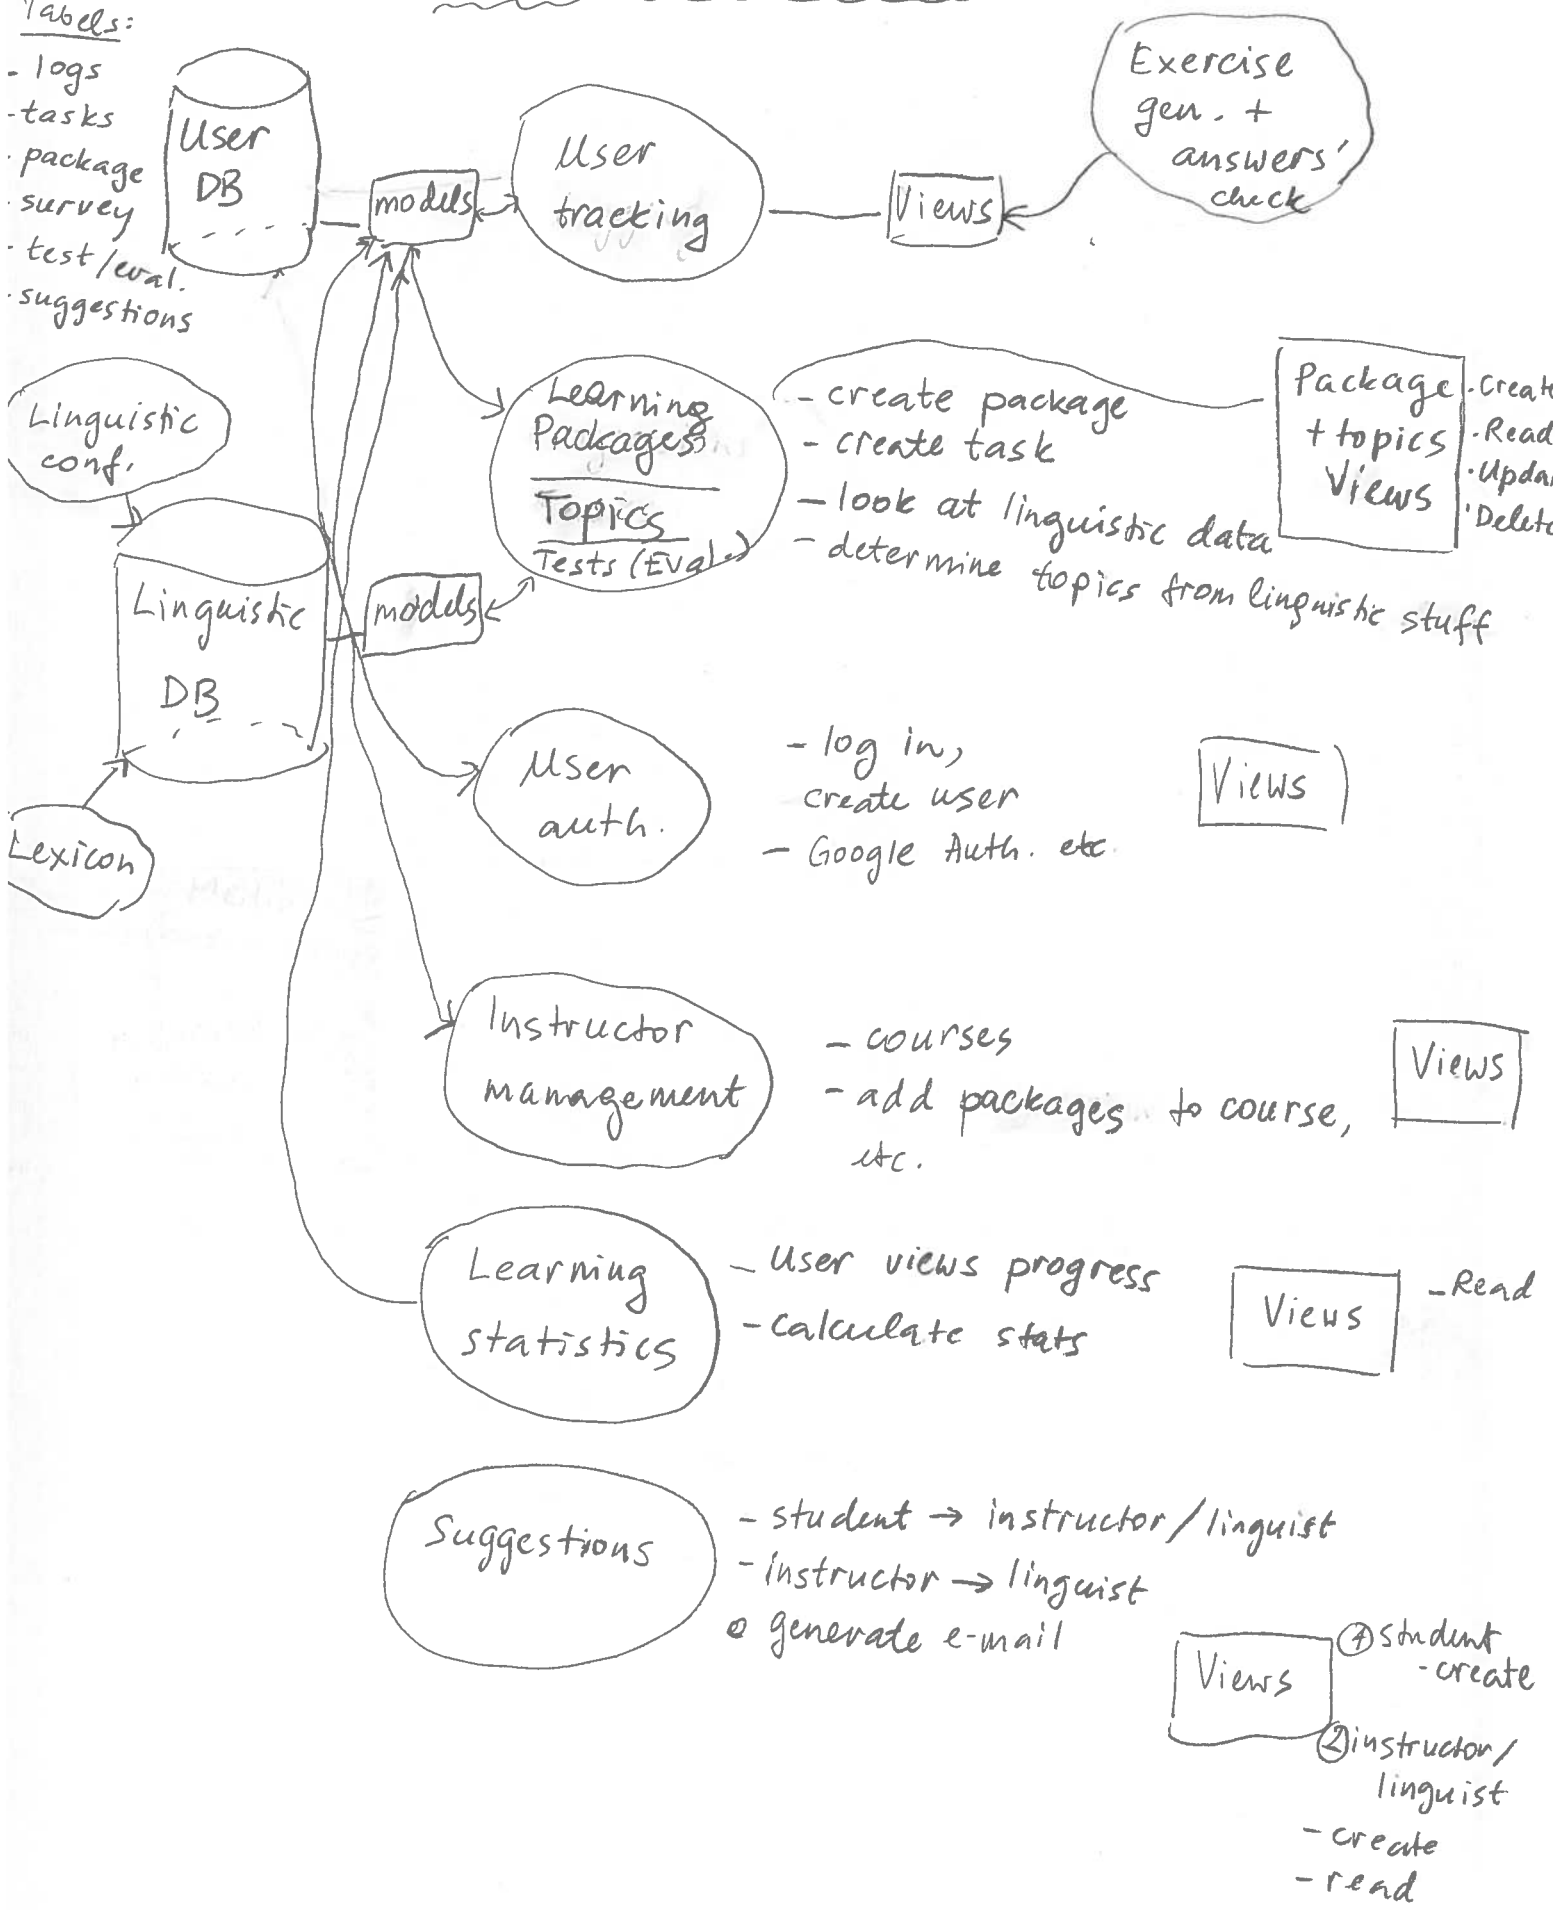 Tabels:
- logs
- tasks
- package
- survey
- test/eval.
- suggestions
User
DB
models
User
tracking
Views
Exercise
gen. +
answers'
check
Linguistic
conf.
Linguistic
DB
Lexicon
models
Learning
Packages
Topics
Tests (Eval.)
- create package
- create task
- look at linguistic data
- determine topics from linguistic stuff
Package
+ topics
Views
· Create
· Read
· Updat
· Delete
User
auth.
- log in,
create user
- Google Auth. etc.
Views
Instructor
management
- courses
- add packages to course,
etc.
Views
Learning
statistics
- User views progress
- calculate stats
Views
- Read
Suggestions
- student → instructor/linguist
- instructor → linguist
• generate e-mail
Views
① student
- create
② instructor/
linguist
- create
- read